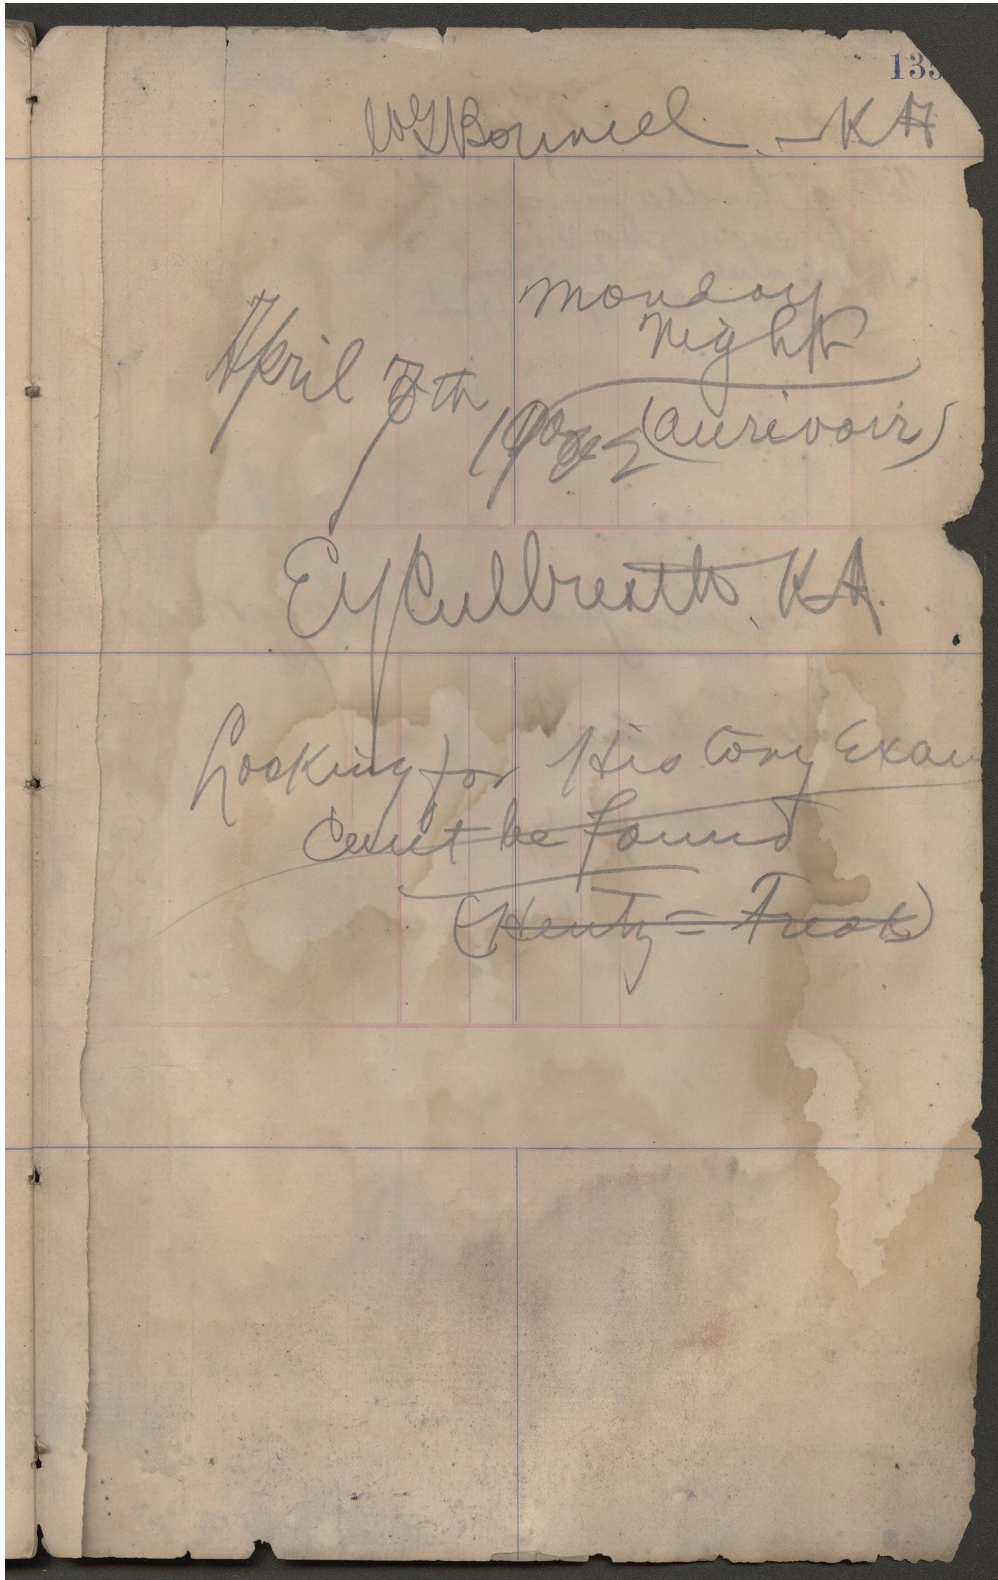 135
WGBonniel - KA
Monday
Night
April 7th 1902 (aurivoir)
EYCulbreath, KA.
Looking for History Exam
Can't be found
(Hentz = Freak)